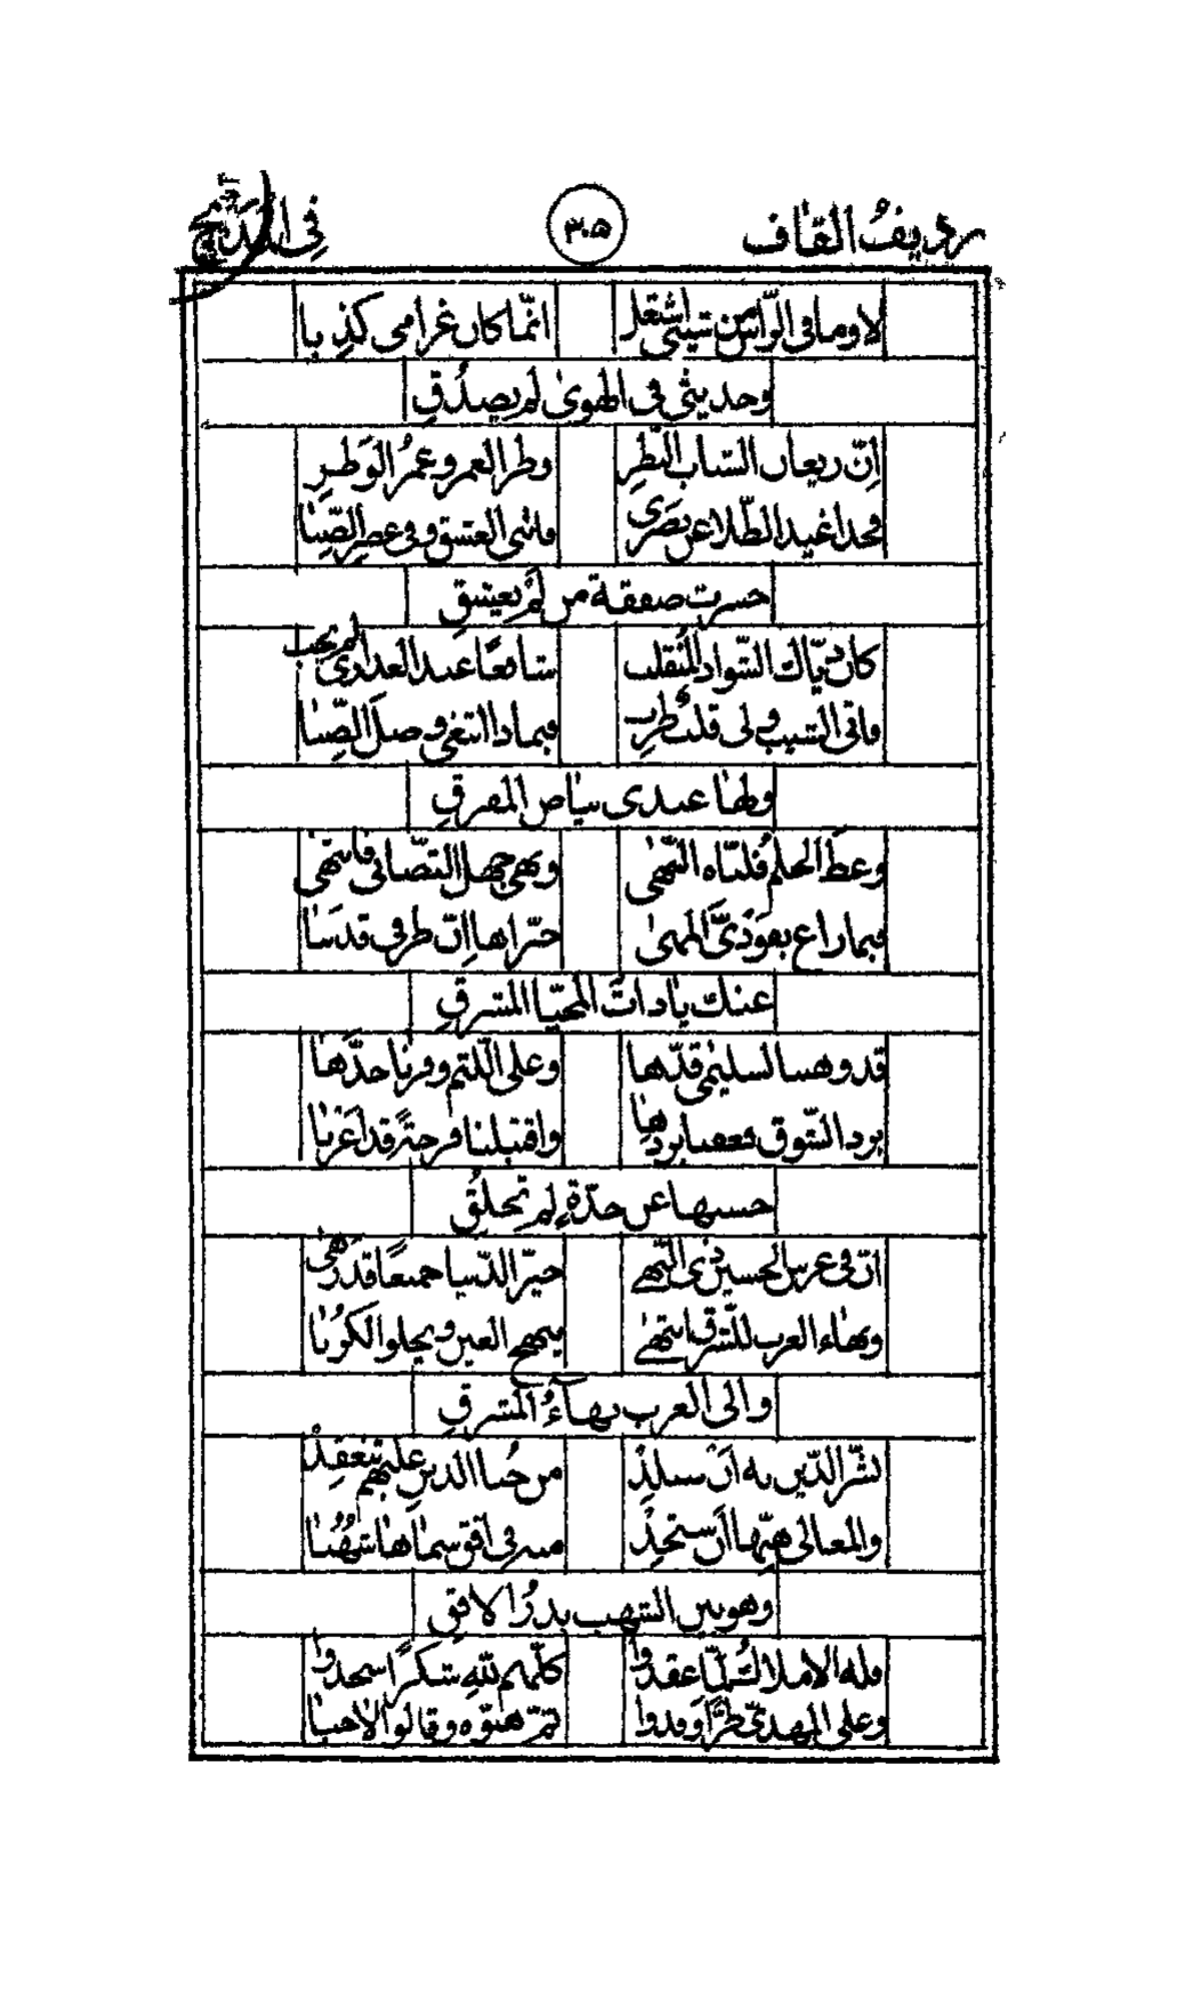 رديفُ القاف ٣٠٥ فى المديح
لا وما فى الرّأس من شيبى اشتعل انّما كان غرامى كذِبا
وحديثى فى الهوىٰ لم يصدُقِ
إنّ ريعان الشباب النّظِرِ وطر العمر وعمرُ الوَطَرِ
العشق وفى عصر الصّبا
خسرت صفقة من لم يعشقِ
كان ديّاك السّواد المُنقلب شافعًا عند العذارى لم تجب
فاتى الشيب ولى قلبٌ طرِب فبماذا ابتغى وصل الصّبا
ولها عندى بياض المفرقِ
وعظ الحلمُ فلبّاه النّهىٰ ونهى جهل التصّابى فانتهىٰ
فبما راع بفَوْدَىَّ المهىٰ ان طرفى قد
عنك يا ذات المحيّا المشرقِ
قد وهبنا لسليمىٰ قدّها وعلى اللّثم وفرنا خدَّها
برد الشّوق فعفنا بردها واقتبلنا فرحةً قد
حسنها عن جدّةٍ لم تخلقِ
انّ فى عرس الحسين ذى النّهے حيّز الدّنيا جميعًا قد زهىٰ
وبهاء العرب للشّرق انتهےٰ يبهج العين ويجلو الكُرَبا
والى العرب بهآءُ المشرقِ
بشّر الدّين به أن من حُبا الدين عليهم تنعقِدْ
والمعالى هنّها أن ستجِدْ منه فى افق سماها شُهُبا
وهو بين الشهب بدرُ الافقِ
وله الاملاك لمّا عقدوا كلّهم للّهِ شكرًا سجدوا
وعلى المهدىّ طرًّا وفدوا ثمّ هنّوه وقالوا لا خبا